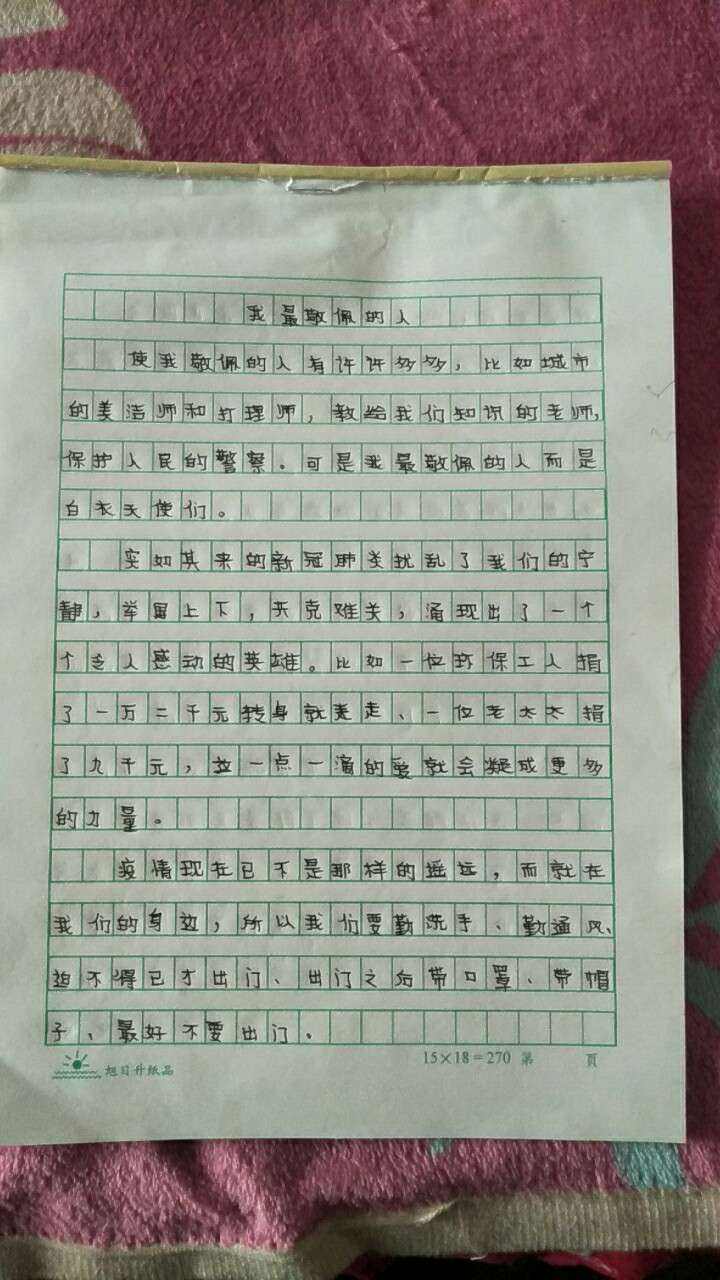 我最敬佩的人
使我敬佩的人有许许多多，比如城市
的美洁师和打理师，教给我们知识的老师，
保护人民的警察。可是我最敬佩的人而是
白衣天使们。
突如其来的新冠肺炎扰乱了我们的宁
静，举国上下，共克难关，涌现出了一个
个令人感动的英雄。比如一位环保工人捐
了一万二千元转身就走、一位老太太捐
了九千元，这一点一滴的爱就会凝成更多
的力量。
疫情现在已不是那样的遥远，而就在
我们的身边，所以我们要勤洗手、勤通风、
迫不得已才出门、出门之后带口罩、带帽
子、最好不要出门。
旭日升纸品
15×18=270 第 頁